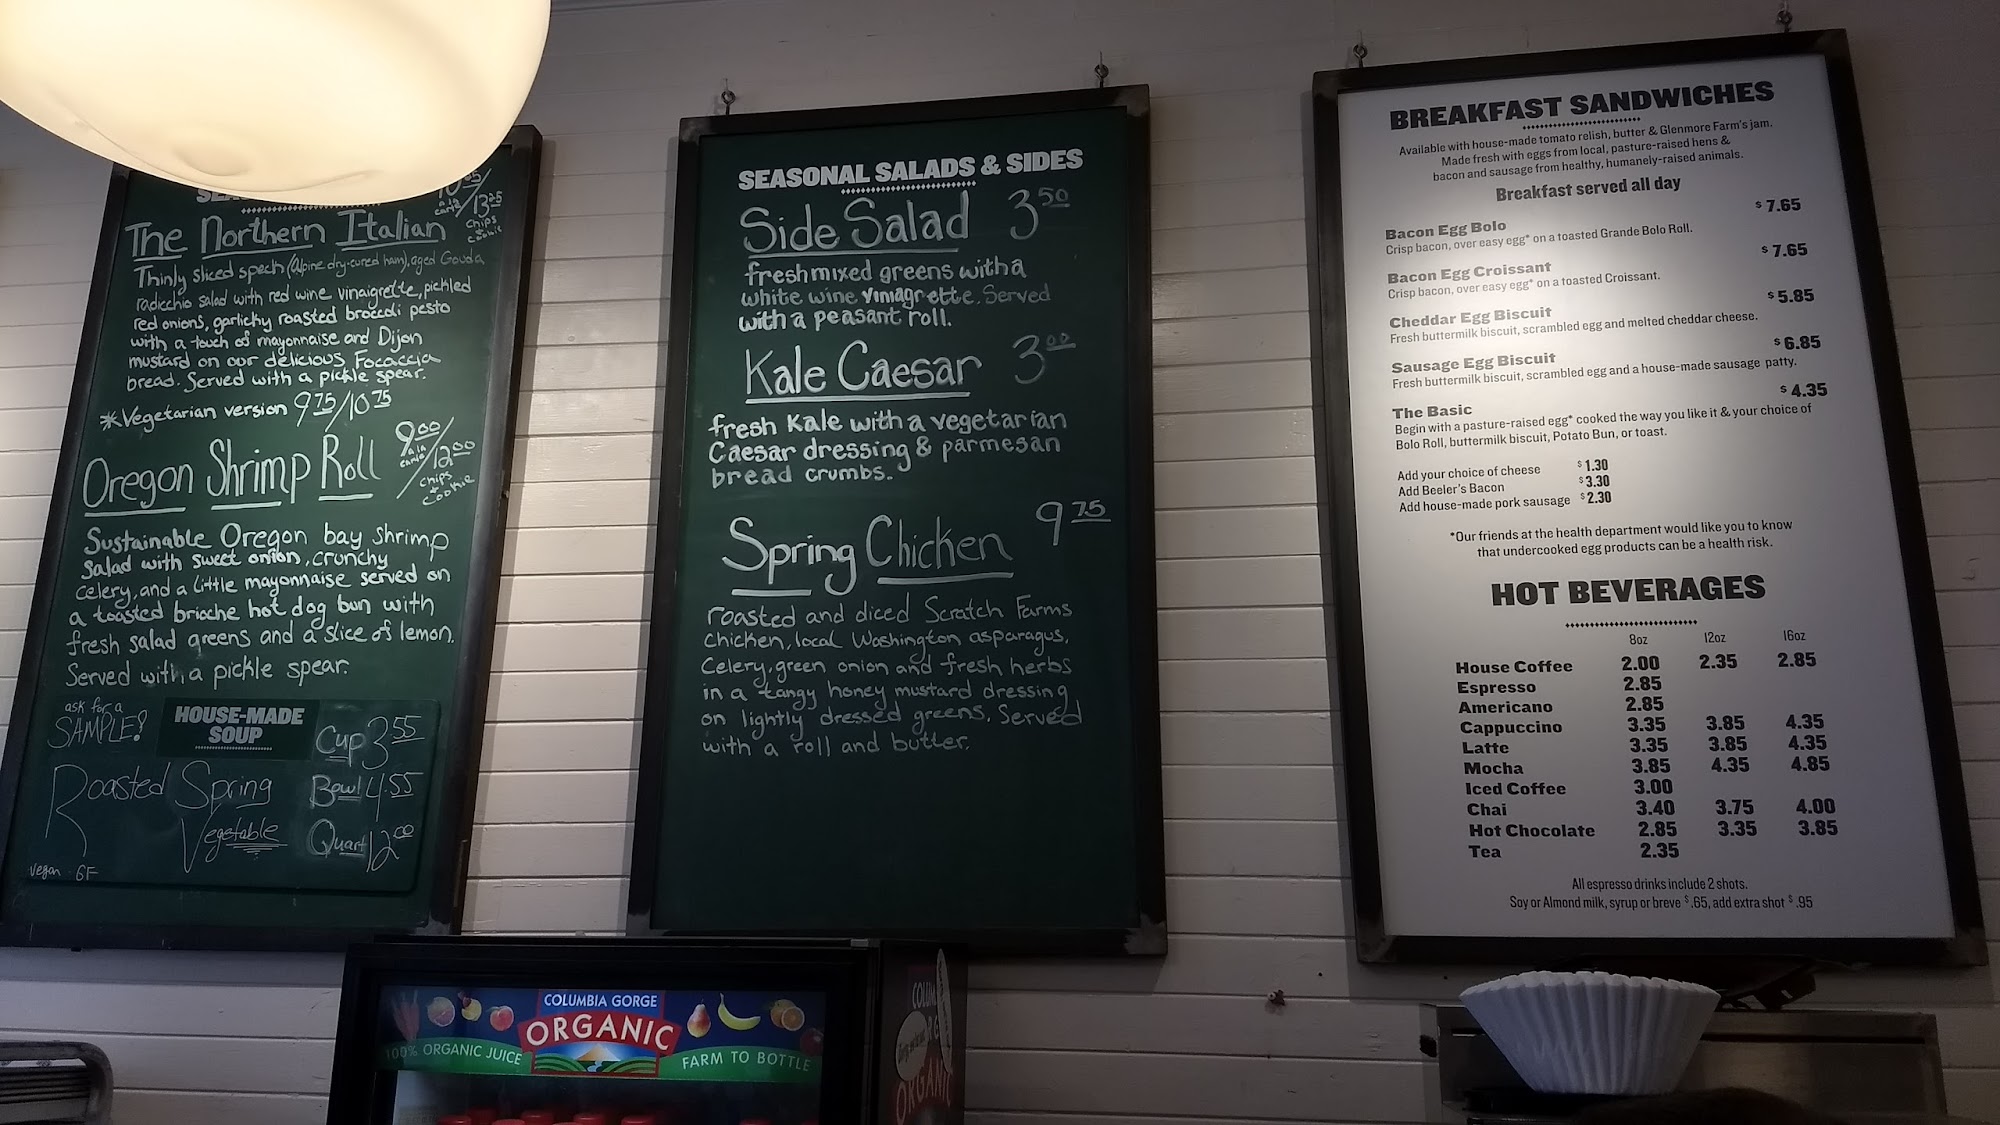 The Northern Italian
a la carte / 13 25
chips cookie
Thinly sliced speck (Alpine dry-cured ham), aged Gouda
radicchio salad with red wine vinaigrette, pickled
red onions, garlicky roasted broccoli pesto
with a touch of mayonnaise and Dijon
mustard on our delicious Focaccia
bread. Served with a pickle spear.
*Vegetarian version 9 75/10 75
Oregon Shrimp Roll 9 00 a la carte / 12 00 chips + cookie
Sustainable Oregon bay shrimp
salad with sweet onion, crunchy
celery, and a little mayonnaise served on
a toasted brioche hot dog bun with
fresh salad greens and a slice of lemon.
Served with a pickle spear.
ask for a
SAMPLE!
HOUSE-MADE
SOUP
Cup 3 55
Roasted Spring
Vegetable
Bowl 4.55
Quart 12 00
vegan - GF
SEASONAL SALADS & SIDES
Side Salad 3 50
fresh mixed greens with a
white wine viniagrette. Served
with a peasant roll.
Kale Caesar 3 00
fresh Kale with a vegetarian
Caesar dressing & parmesan
bread crumbs.
Spring Chicken 9 75
roasted and diced Scratch Farms
Chicken, local Washington asparagus,
Celery, green onion and fresh herbs
in a tangy honey mustard dressing
on lightly dressed greens. Served
with a roll and butter.
BREAKFAST SANDWICHES
Available with house-made tomato relish, butter & Glenmore Farm's jam.
Made fresh with eggs from local, pasture-raised hens &
bacon and sausage from healthy, humanely-raised animals.
Breakfast served all day
Bacon Egg Bolo $7.65
Crisp bacon, over easy egg* on a toasted Grande Bolo Roll.
Bacon Egg Croissant $7.65
Crisp bacon, over easy egg* on a toasted Croissant.
Cheddar Egg Biscuit $5.85
Fresh buttermilk biscuit, scrambled egg and melted cheddar cheese.
Sausage Egg Biscuit $6.85
Fresh buttermilk biscuit, scrambled egg and a house-made sausage patty.
The Basic $4.35
Begin with a pasture-raised egg* cooked the way you like it & your choice of
Bolo Roll, buttermilk biscuit, Potato Bun, or toast.
Add your choice of cheese $1.30
Add Beeler's Bacon $3.30
Add house-made pork sausage $2.30
*Our friends at the health department would like you to know
that undercooked egg products can be a health risk.
HOT BEVERAGES
8oz 12oz 16oz
House Coffee 2.00 2.35 2.85
Espresso 2.85
Americano 2.85
Cappuccino 3.35 3.85 4.35
Latte 3.35 3.85 4.35
Mocha 3.85 4.35 4.85
Iced Coffee 3.00
Chai 3.40 3.75 4.00
Hot Chocolate 2.85 3.35 3.85
Tea 2.35
All espresso drinks include 2 shots.
Soy or Almond milk, syrup or breve $.65, add extra shot $.95
COLUMBIA GORGE
ORGANIC
100% ORGANIC JUICE
FARM TO BOTTLE
ORGANIC